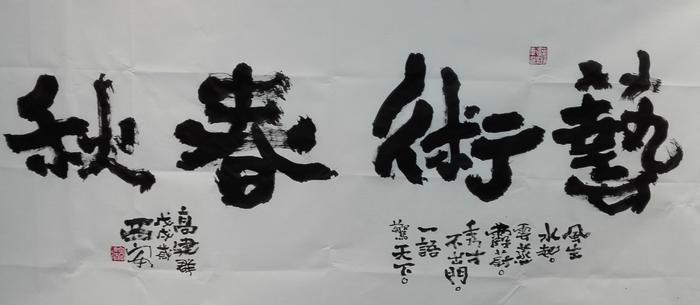 藝術春秋
風生
水起。
雲蒸
霞蔚。
秀才
不出門。
一語
驚天下。
高建群
戊戌歲
西安